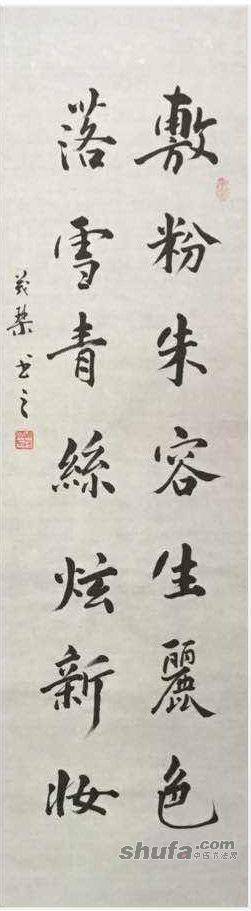 敷粉朱容生麗色
落雪青絲炫新妝
義藜书之
shufa.com
中国书法网